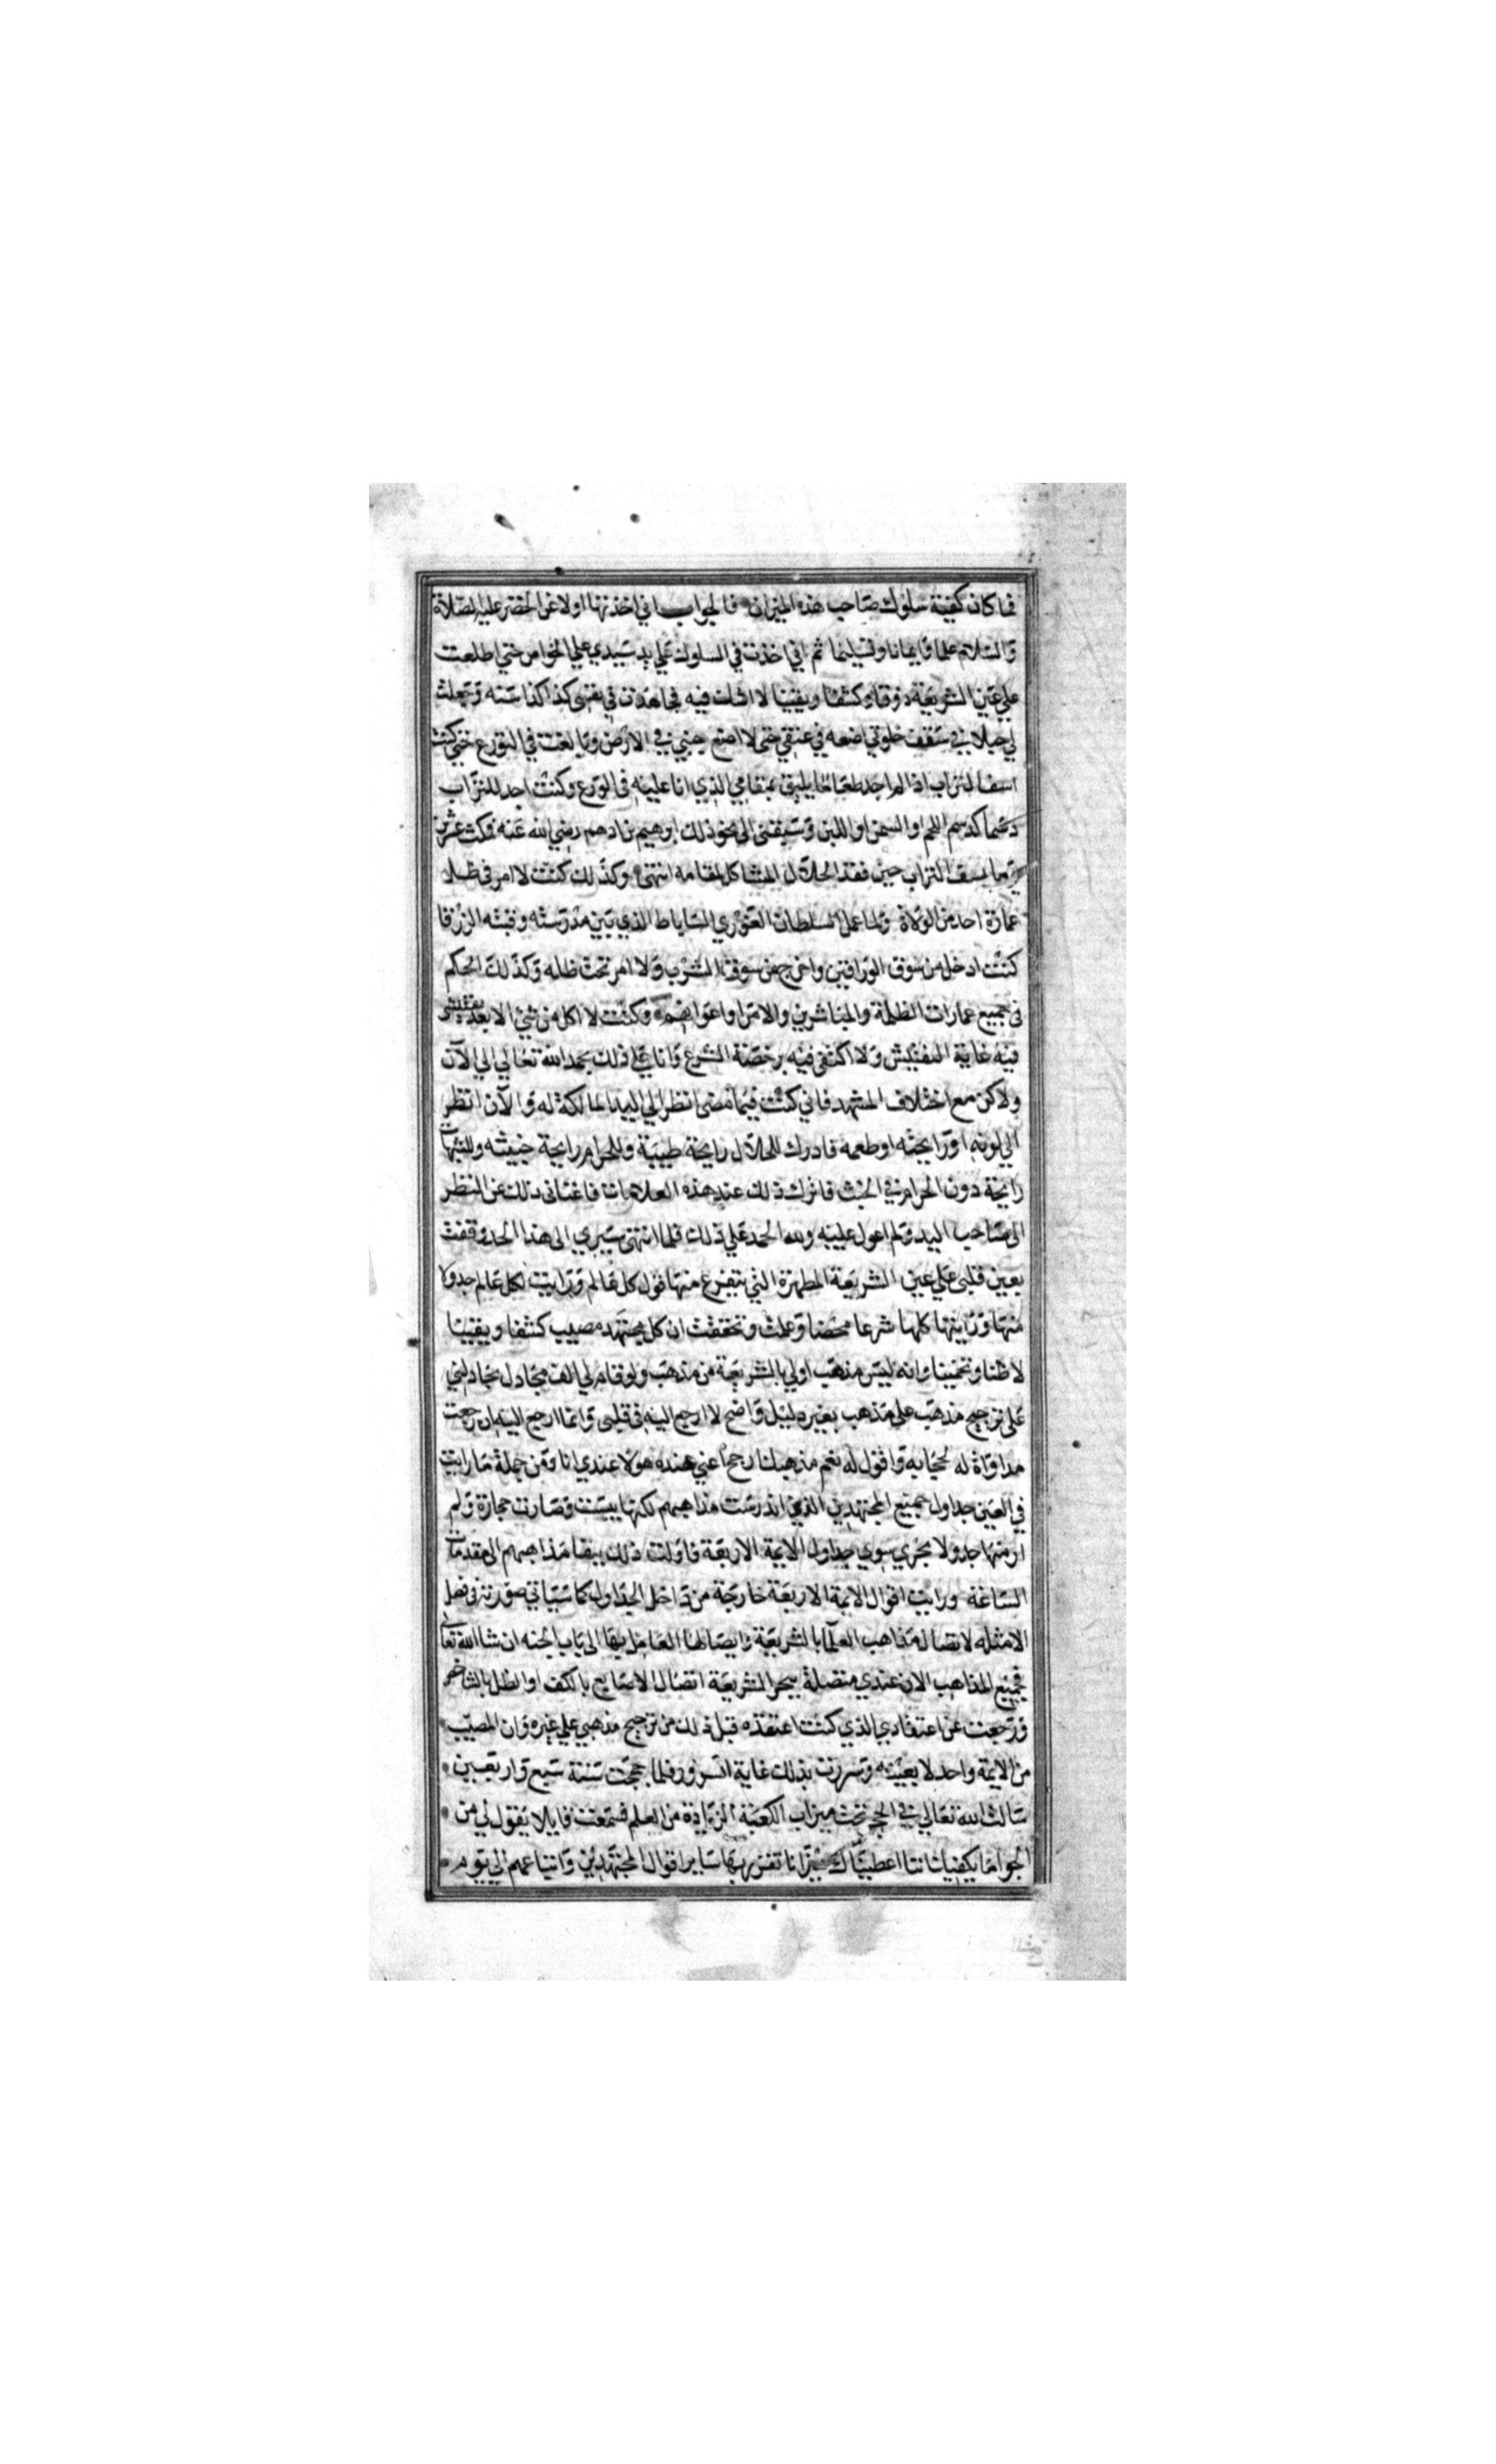 فما كان كيفية سلوك صاحب هذه الميزان فالجواب اني اخذتها اولا عن الخضر عليه الصلاة
والسلام علما وايمانا وتسليما ثم اني اخذت في السلوك علي يد سيدي علي الخواص حتي اطلعت
علي عين الشريعة ذوقا وكشفا ويقينا لا اشك فيه فجاهدت في نفسي كذا كذا سنه وجعلت
لي حبلا في سقف خلوتي اضعه في عنقي حتي لا اضع جنبي في الارض وبالغت في التورع حتي كنت
اسف التراب اذا لم اجد طعاما يليق بمقامي الذي انا عليه في الورع وكنت اجد للتراب
دسما كدسم اللحم او السمن او اللبن وسبقني الي نحو ذلك ابرهيم بن ادهم رضي الله عنه فمكث عشرين
يوما يسف التراب حين فقد الحلال المشاكل لمقامه انتهى وكذلك كنت لا امر في ظل
عمارة احد من الولاة ولما عمل السلطان الغوري الساباط الذي بين مدرسته وقبته الزرقا
كنت ادخل من سوق الوراقين واخرج من سوق الشرب ولا امر تحت ظله وكذلك الحكم
في جميع عمارات الظلمة والمباشرين والامرا واعوانهم وكنت لا اكل من شي الا بعد تفتيشي
فيه غاية التفتيش ولا اكتفي فيه برخصة الشرع وانا علي ذلك بحمد الله تعالي الي الآن
ولاكن مع اختلاف المشهد فاني كنت فيما مضى انظر الي اليد المالكة له والآن انظر
الي لونه او رايحته او طعمه فادرك للحلال رايحة طيبة وللحرام رايحة خبيثه وللشبهات
رايحة دون الحرام في الخبث فاترك ذلك عند هذه العلامات فاغناني ذلك عن النظر
الى صاحب اليد ولم اعول عليه ولله الحمد علي ذلك فلما انتهي سيري الى هذا الحد وقفت
بعين قلبي علي عين الشريعة المطهرة التي يتفرع منها قول كل عالم ورايت لكل عالم جدولا
منها ورايتها كلها شرعا محضا وعلمت وتحققت ان كل مجتهد مصيب كشفا ويقينا
لا ظنا وتخمينا وانه ليس مذهب اولي بالشريعة من مذهب ولو قام لي الف مجادل يجادلني
على ترجيح مذهب علي مذهب بغير دليل واضح لا ارجع اليه في قلبي وانما ارجع اليه ان رجعت
مداواة له لحجابه واقول له نعم مذهبك ارجح اعني عنده هو لا عندي انا ومن جملة ما رايت
في العين جداول جميع المجتهدين الذين اندرست مذاهبهم لكنها يبست وصارت حجارة ولم
ار منها جدولا يجري سوي جداول الايمة الاربعة فاولت ذلك ببقا مذاهبهم الي مقدمات
الساعة ورايت اقوال الايمة الاربعة خارجة من داخل الجداول كما سياتي صورته في فصل
الامثله لاتصال مذاهب العلما بالشريعة وايصالها العامل بها الى باب الجنه ان شا الله تعالى
فجميع المذاهب الان عندي متصلة ببحر الشريعة اتصال الاصابع بالكف او الظل بالشاخص
ورجعت عن اعتقادي الذي كنت اعتقده قبل ذلك من ترجيح مذهبي علي غيره وان المصيب
من الايمة واحد لا بعينه وسررت بذلك غاية السرور فلما حججت سنة سبع واربعين
سالت الله تعالي في الحجر تحت ميزاب الكعبة الزيادة من العلم فسمعت قايلا يقول لي من
الجو اما يكفيك اننا اعطيناك ميزانا تقرر بها ساير اقوال المجتهدين واتباعهم الي يوم